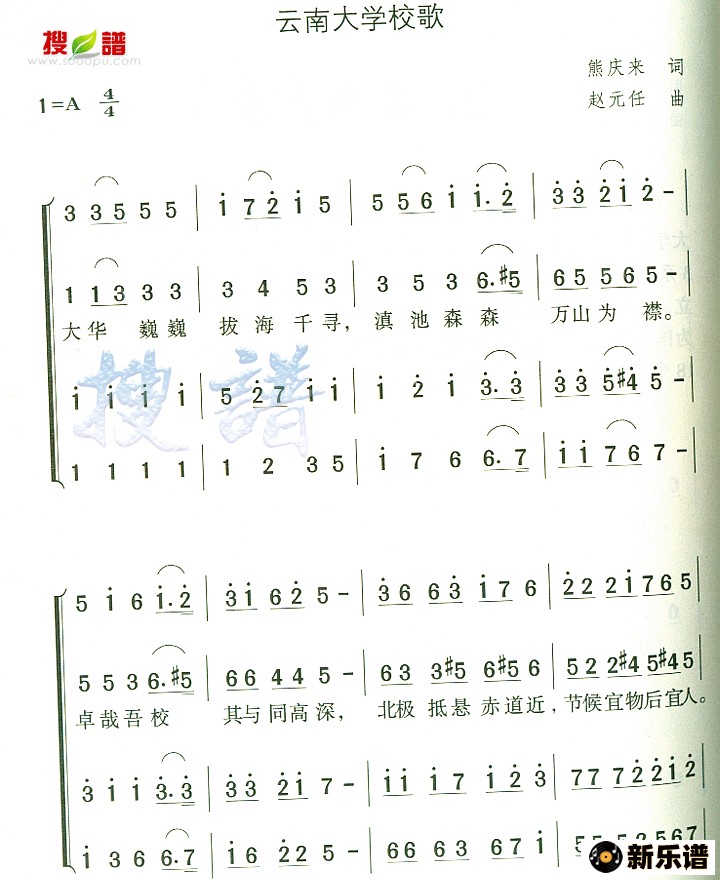 云南大学校歌
搜谱
www.sooopu.com
熊庆来 词
1=A 4/4
赵元任 曲
3 3 5 5 5 | i 7 2̇ i 5 | 5 5 6 i i. 2̇ | 3̇ 3̇ 2̇ i 2̇ – |
1 1 3 3 3 | 3 4 5 3 | 3 5 3 6. #5 | 6 5 5 6 5 – |
大华 巍巍 拔海千寻, 滇池森森 万山为 襟。
搜谱
i i i i | 5 2̇ 7 i i | i 2̇ i 3̇. 3̇ | 3̇ 3̇ 5̇ #4̇ 5̇ – |
1 1 1 1 | 1 2 3 5 | i 7 6 6. 7 | i i 7 6 7 – |
5 i 6 i. 2̇ | 3̇ i 6 2̇ 5 – | 3̇ 6 6 3̇ i 7 6 | 2̇ 2̇ 2̇ i 7 6 5 |
5 5 3 6. #5 | 6 6 4 4 5 – | 6 3 3 #5 6 #5 5 | 5 2 2 #4 5 #4 5 |
卓哉吾校 其与同高深, 北极 抵悬赤道近,节候宜物后宜人。
3̇ i i 3̇. 3̇ | 3̇ 3̇ 2̇ i 7 – | i i i 7 i 2̇ 3̇ | 7 7 7 2̇ 2̇ i 2̇ |
i 3 6 6. 7 | i 6 2̇ 2̇ 5 – | 6 6 6 3 6 7 i |
新乐谱